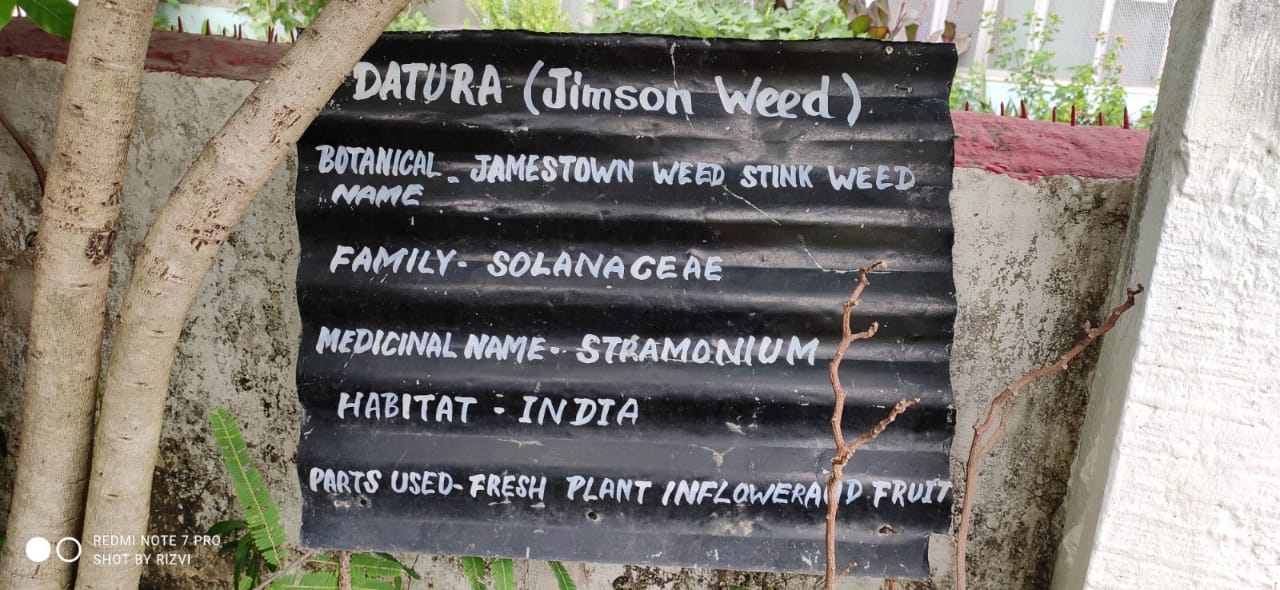 DATURA (Jimson Weed)
BOTANICAL - JAMESTOWN WEED STINK WEED
NAME
FAMILY- SOLANACEAE
MEDICINAL NAME- STRAMONIUM
HABITAT - INDIA
PARTS USED- FRESH PLANT INFLOWER AND FRUIT
REDMI NOTE 7 PRO
SHOT BY RIZVI